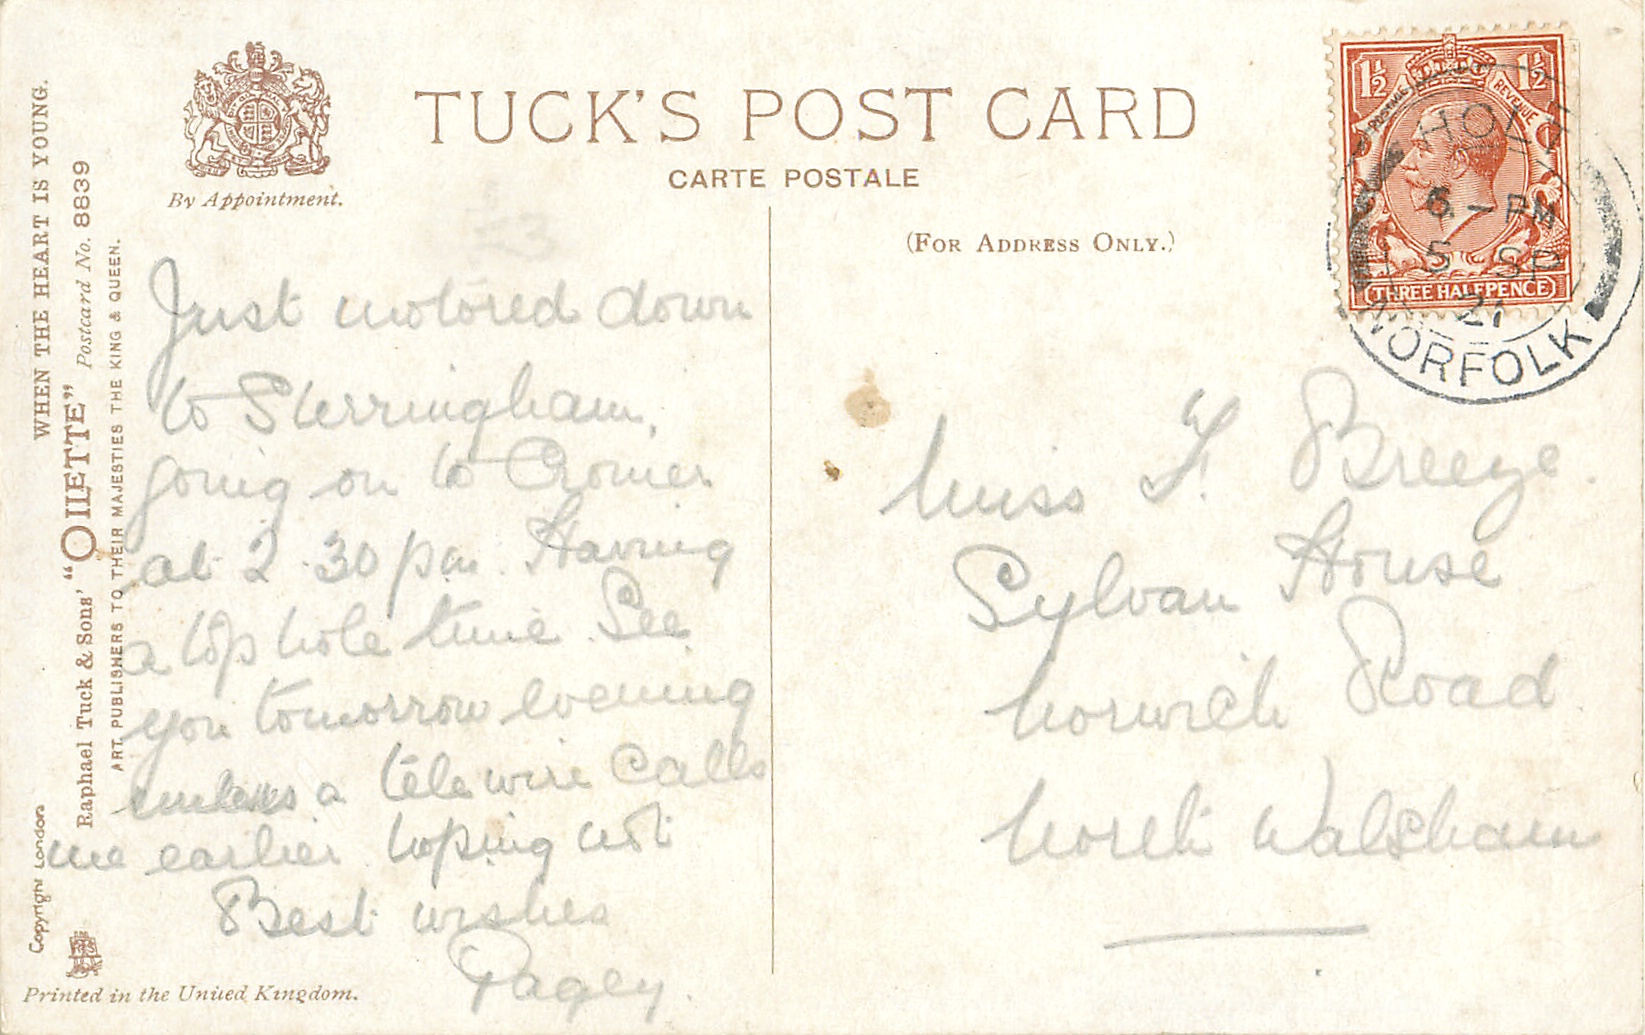 WHEN THE HEART IS YOUNG.
Raphael Tuck & Sons' "OILETTE" Postcard No. 8839
ART PUBLISHERS TO THEIR MAJESTIES THE KING & QUEEN.
Copyright London
By Appointment.
TUCK'S POST CARD
CARTE POSTALE
(FOR ADDRESS ONLY.)
1½ 1½
POSTAGE REVENUE
THREE HALFPENCE
HOLT
6-PM
5 SP
21
NORFOLK
£3
Just motored down
to Sherringham,
going on to Cromer
at 2.30 pm. Having
a top hole time. See
you tomorrow evening
unless a tele wire calls
me earlier hoping not
Best wishes
Pagey.
Miss F. Breeze.
Sylvan House
Norwich Road
North Walsham
Printed in the United Kingdom.